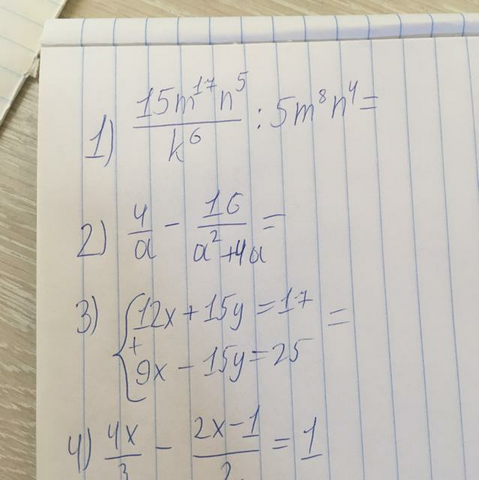 1) 15m¹⁷n⁵/k⁶ : 5m⁸n⁴ =
2) 4/a - 16/(a²+4a) =
3) { 12x + 15y = 17 =
+ 9x - 15y = 25
4) 4x/3 - (2x-1)/2 = 1